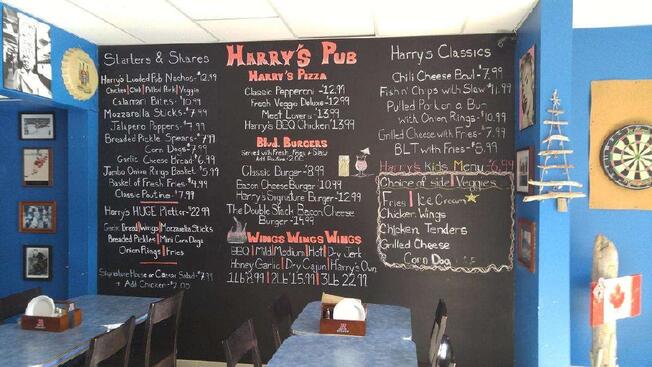 Starters & Shares
Harry's Loaded Pub Nachos - $12.99
Chicken | Chili | Pulled Pork | Veggie
Calamari Bites - $10.99
Mozzarella Sticks - $7.99
Jalapeno Poppers - $7.99
Breaded Pickle Spears - $7.99
Corn Dogs - $7.99
Garlic Cheese Bread - $6.99
Jumbo Onion Rings Basket - $5.99
Basket of Fresh Fries - $4.99
Classic Poutine - $7.99
Harry's HUGE Platter - $22.99
Garlic Bread | Wings | Mozzarella Sticks
Breaded Pickles | Mini Corn Dogs
Onion Rings | Fries
Signature House or Caesar Salad - $7.99
+ Add Chicken - $2.00
Harry's Pub
Harry's Pizza
Classic Pepperoni - $12.99
Fresh Veggie Deluxe - $12.99
Meat Lovers - $13.99
Harry's BBQ Chicken $13.99
Blvd. Burgers
Served with Fresh Fries & Slaw
Add Poutine $2.00
Classic Burger - $8.99
Bacon Cheese Burger $10.99
Harry's Signature Burger - $12.99
The Double Stack Bacon Cheese
Burger - $14.99
Wings Wings Wings
BBQ | Mild | Medium | Hot | Dry Jerk
Honey Garlic | Dry Cajun | Harry's Own
1Lb 8.99 | 2Lb 15.99 | 3Lb 22.99
Harry's Classics
Chili Cheese Bowl - $7.99
Fish n' Chips with Slaw $11.99
Pulled Pork on a Bun
with Onion Rings - $10.99
Grilled Cheese with Fries - $7.99
BLT with Fries - $5.99
Harry's Kids Menu $6.99
Choice of side | Veggies
Fries | Ice Cream
Chicken Wings
Chicken Tenders
Grilled Cheese
Corn Dog